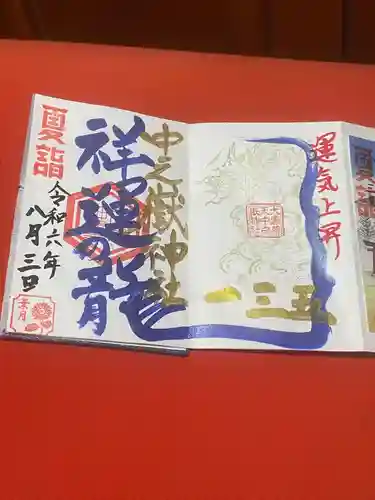 運気上昇
一三五
中之嶽神社
祥運の龍
夏詣
令和六年
八月三日
葉月